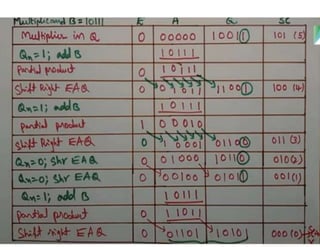 Multiplicand B = 10111 E A Q SC
Multiplier in Q 0 00000 10011 101 (5)
Qn=1; add B 10111
Partial product 0 10111
Shift Right EAQ 0 01011 11001 100 (4)
Qn=1; add B 10111
partial product 1 00010
Shift Right EAQ 0 10001 01100 011 (3)
Qn=0; Shr EAQ 0 01000 10110 010(2)
Qn=0; Shr EAQ 0 00100 01011 001(1)
Qn=1; add B 10111
partial product 0 11011
Shift right EAQ 0 01101 10101 000(0)